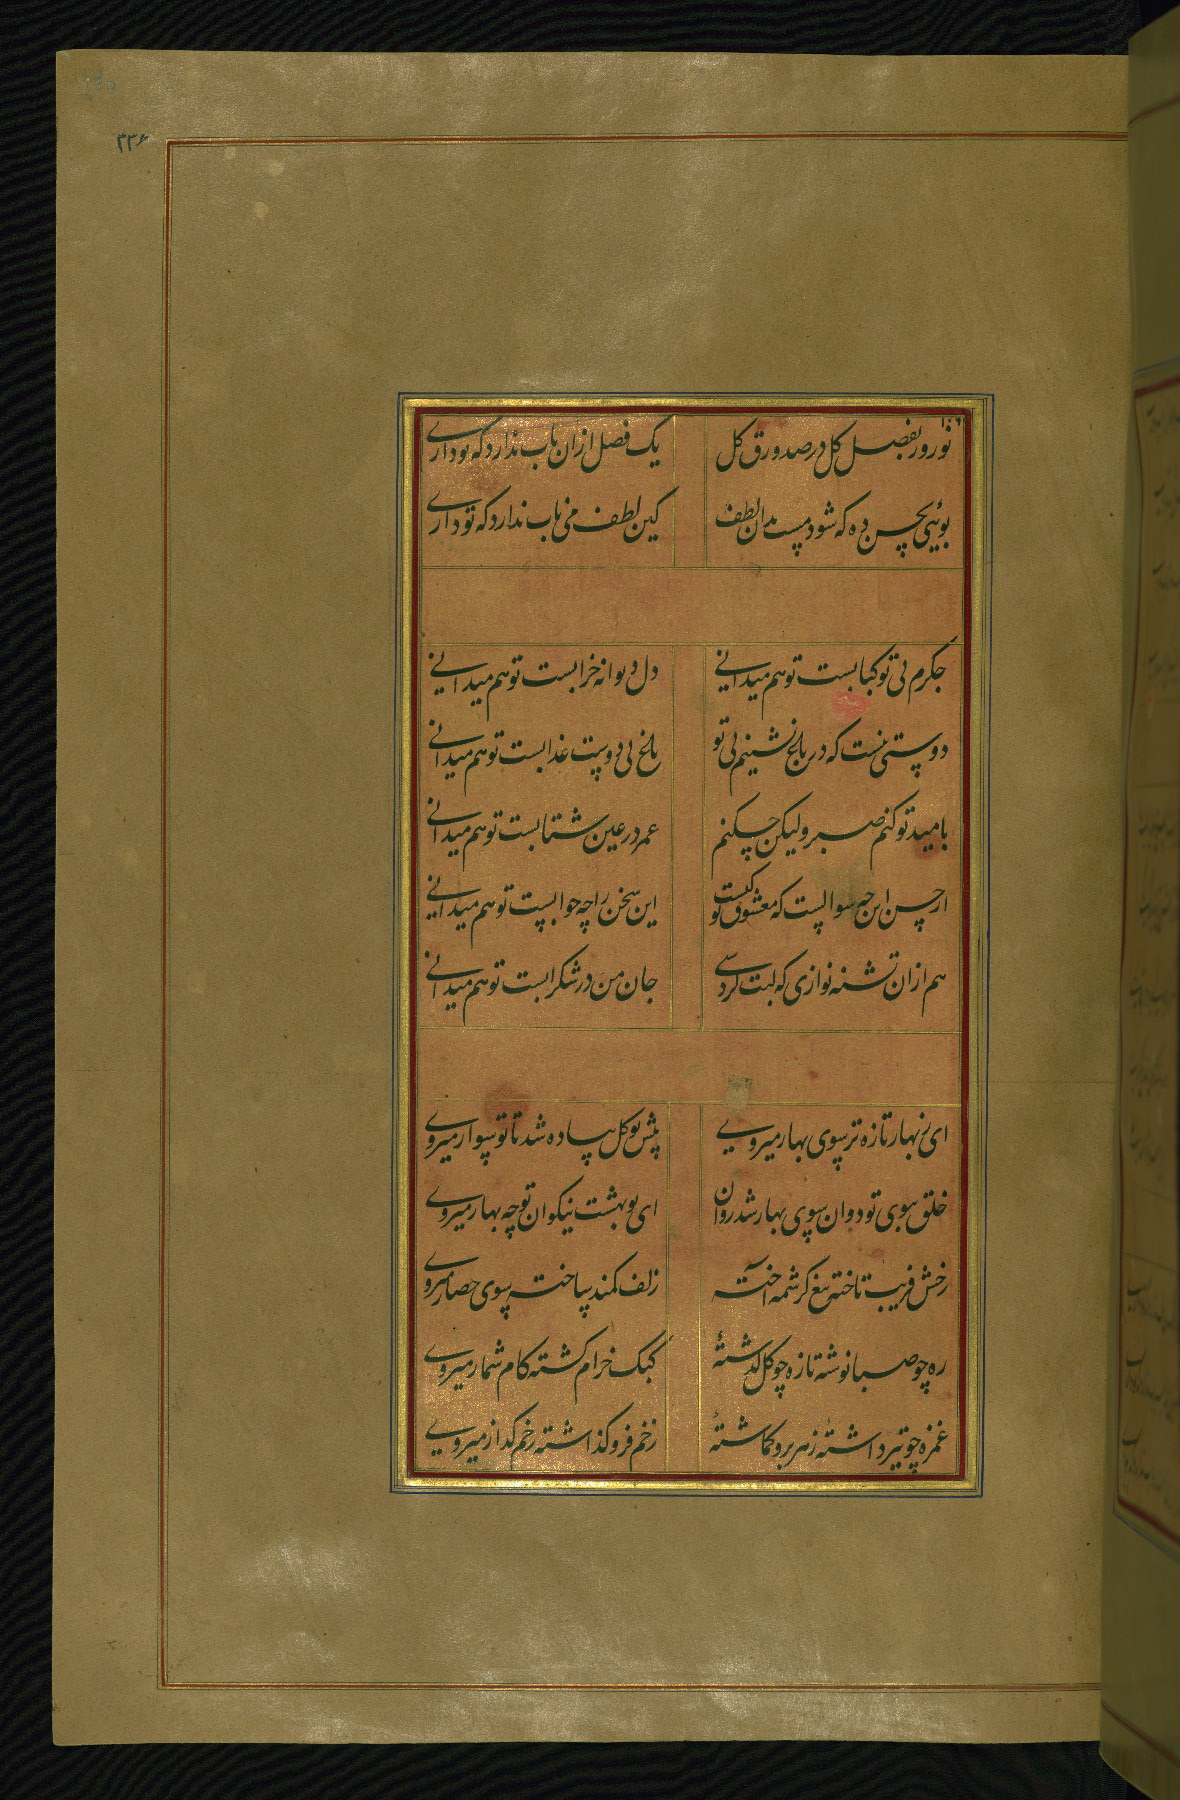 ۳۳۶
نوروز بفصل کل در صد ورق کل
یک فصل ازان باب ندارد که تو داری
بوئی بحسن ده که شود مست بدان لطف
کین لطف می ناب ندارد که تو داری
جکرم بی تو کبابست تو هم میدانی
دل دیوانه خرابست تو هم میدانی
دوستی نیست که در باغ نشینم بی تو
باغ بی دوست عذابست تو هم میدانی
بامید تو کنم صبر ولیکن چکنم
عمر در عین شتابست تو هم میدانی
از حسن این چه سوالست که معشوق تو کیست
این سخن را چه جوابست تو هم میدانی
هم ازان تشنه نوازی که لبت کردسی
جان من در شکرابست تو هم میدانی
ای ز بهار تازه تر سوی بهار میروی
پیش تو کل پیاده شد تا تو سوار میروی
خلق بسوی تو دوان سوی بهار شد روان
ای تو بهشت نیکوان تو چه بهار میروی
رخش فریب تاخته تیغ کرشمه آخته
زلف کمند ساخته سوی حصار میروی
ره چو صبا نوشته تازه چو کل کذشتهٔ
کبک خرام کشته کام شمار میروی
غمزه چو تیر داشته زهر برو کماشتهٔ
زخم فرو کذاشته زخم کذار میروی